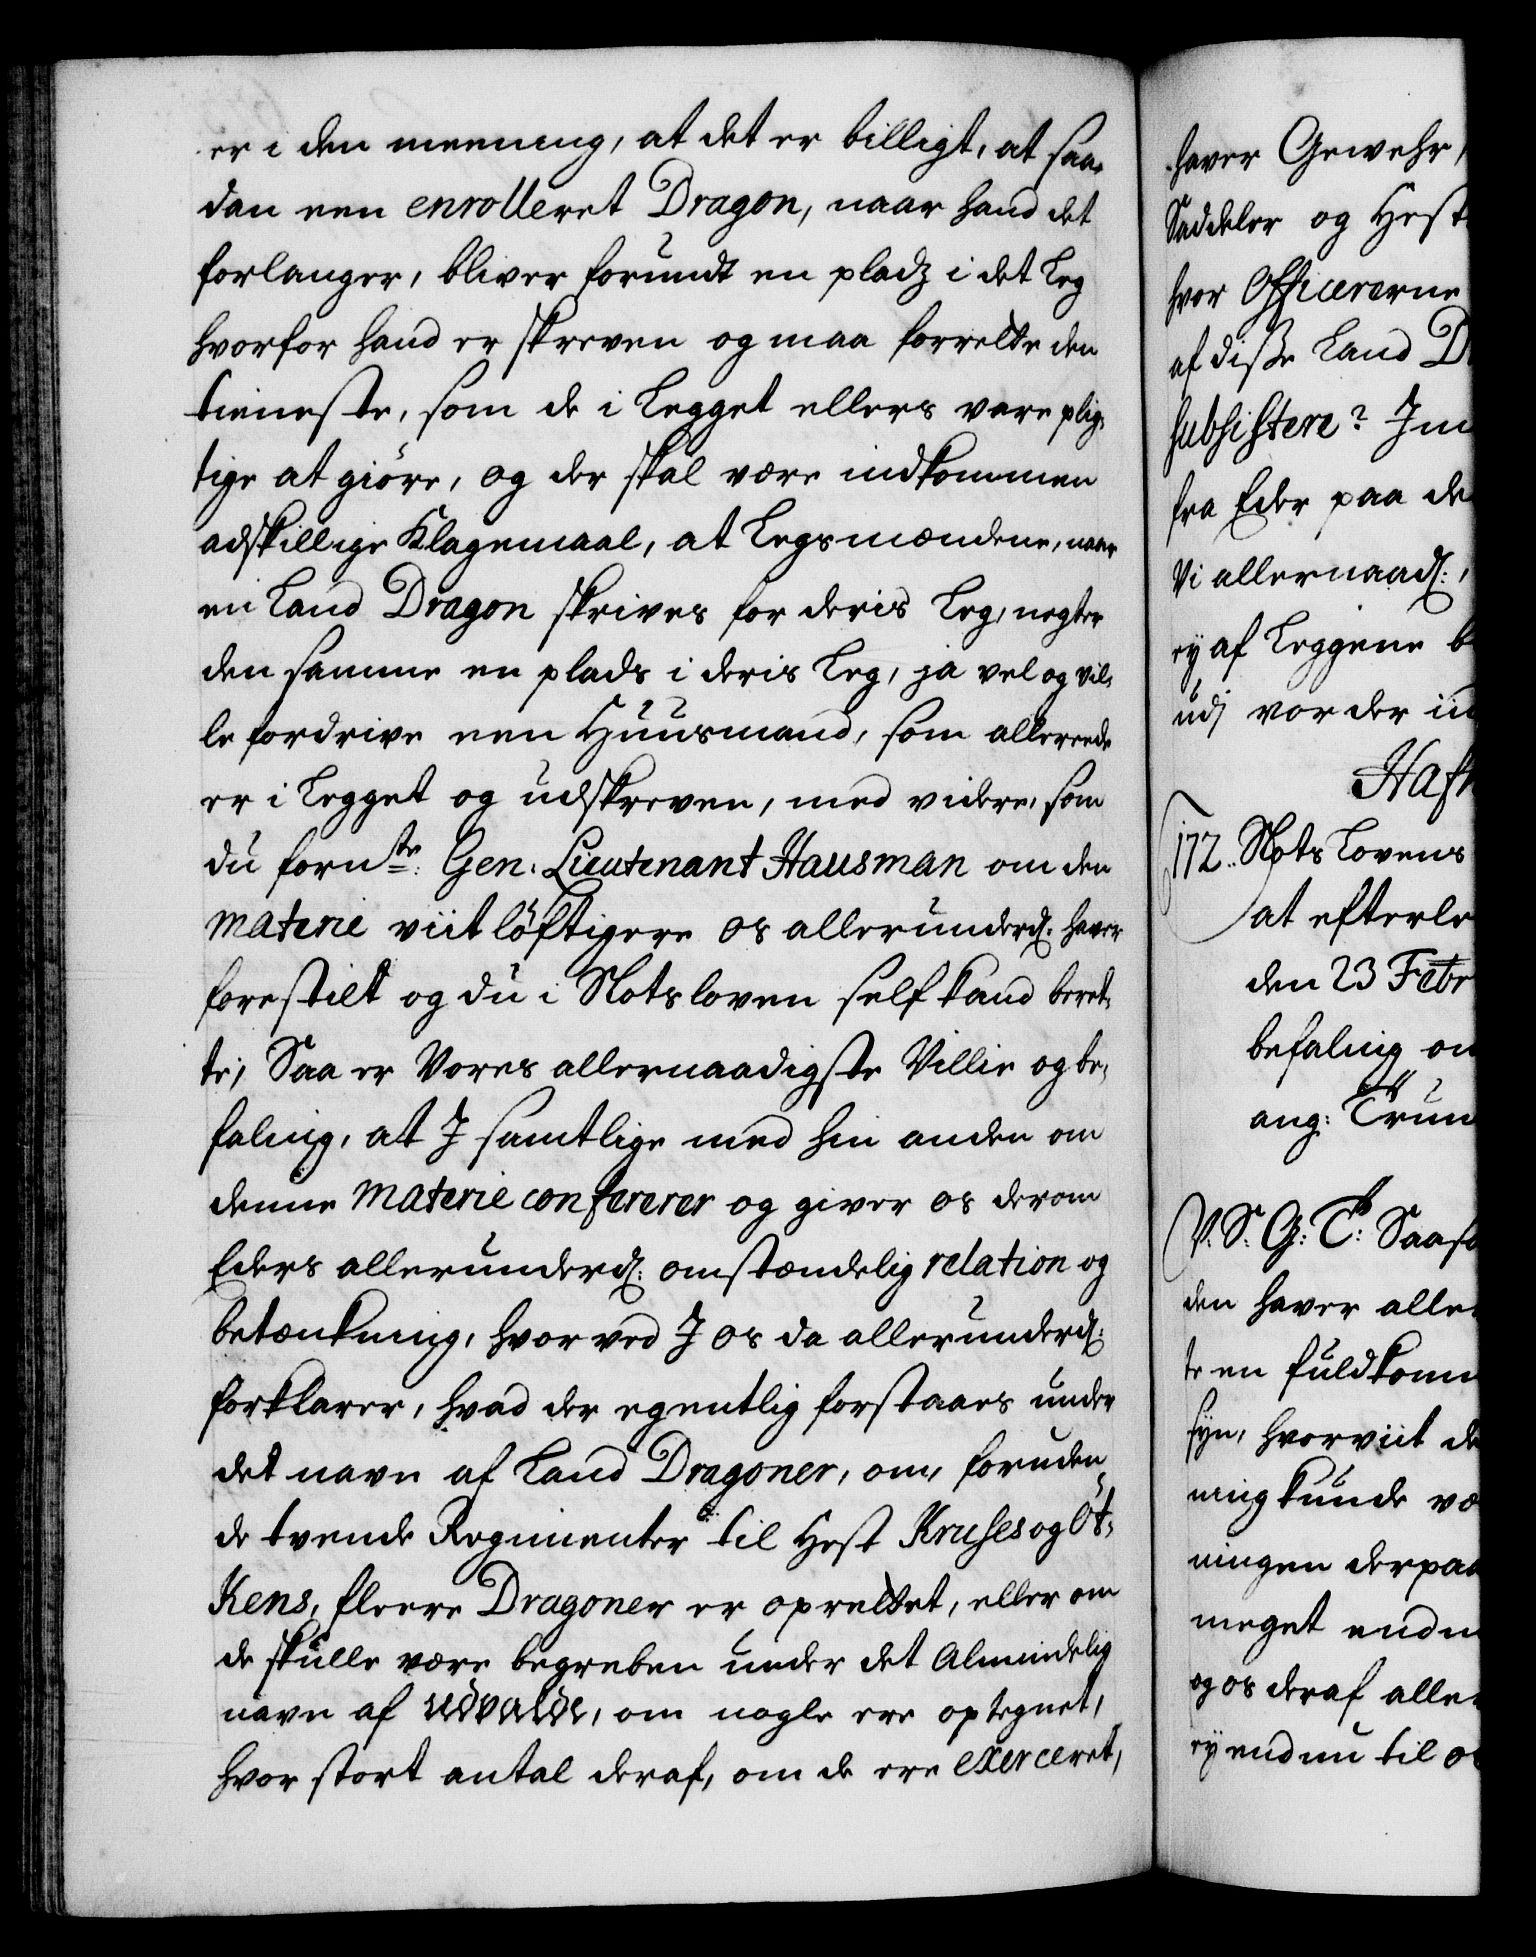 er i den meening, at det er billigt, at saa,
dan een enrolleret Dragon, naar hand det
forlanger, bliver forundt en pladz i det Leg
hvorfor hand er skreven og maa forrette den
tieneste, som de i Legget ellers vare plig,
tige at giöre, og der skal være indkommen
adskillige Klagemaal, at Legsmændene, naar
en Land Dragon skrives for deris Leg, negter
den samme en plads i deris Leg, ja vel og vil,
le fordrive een Huusmand, som allereede
er i Legget og udskreven, med videre, som
du fornte: Gen: Lieutenant Hausman om den
materie viitlöftigere os allerunderd: haver
forestilt og du i Slotsloven self kand beret,
te; Saa er Vores allernaadigste Villie og be,
faling, at I samtlige med hin anden om
denne materie confererer og giver os derom
Eders allerunderd: omstændelig relation og
betænkning, hvorved I os da allerunderd:
forklarer, hvad der egentlig forstaaes under
det navn af Land Dragoner, om, foruden
de tvende Regimenter til Hest Kruses og Öt,
kens, fleere Dragoner er oprettet, eller om
de skulle være begreben under det Almindelig
navn af Udvalde, om nogle ere optegnet,
hvor stort antal deraf, om de ere exerceret,
haver Gewehr,
Saddeler og Hest
hvor Officererne
af disse Land D
subsistere? Im
fra Eder paa de
Vi allernaad:,
ey af Leggene b
udj vor der in
Hafn
172. Slots Lovens
at efterle
den 23 Febr
befaling on
ang: Trun
V. S. G: T: Saaso
den haver alle
te en fuldkom
syn, hvorviit de
ning kunde væ
ningen derpaa
meget endn
og os deraf alle
ey endnu til o